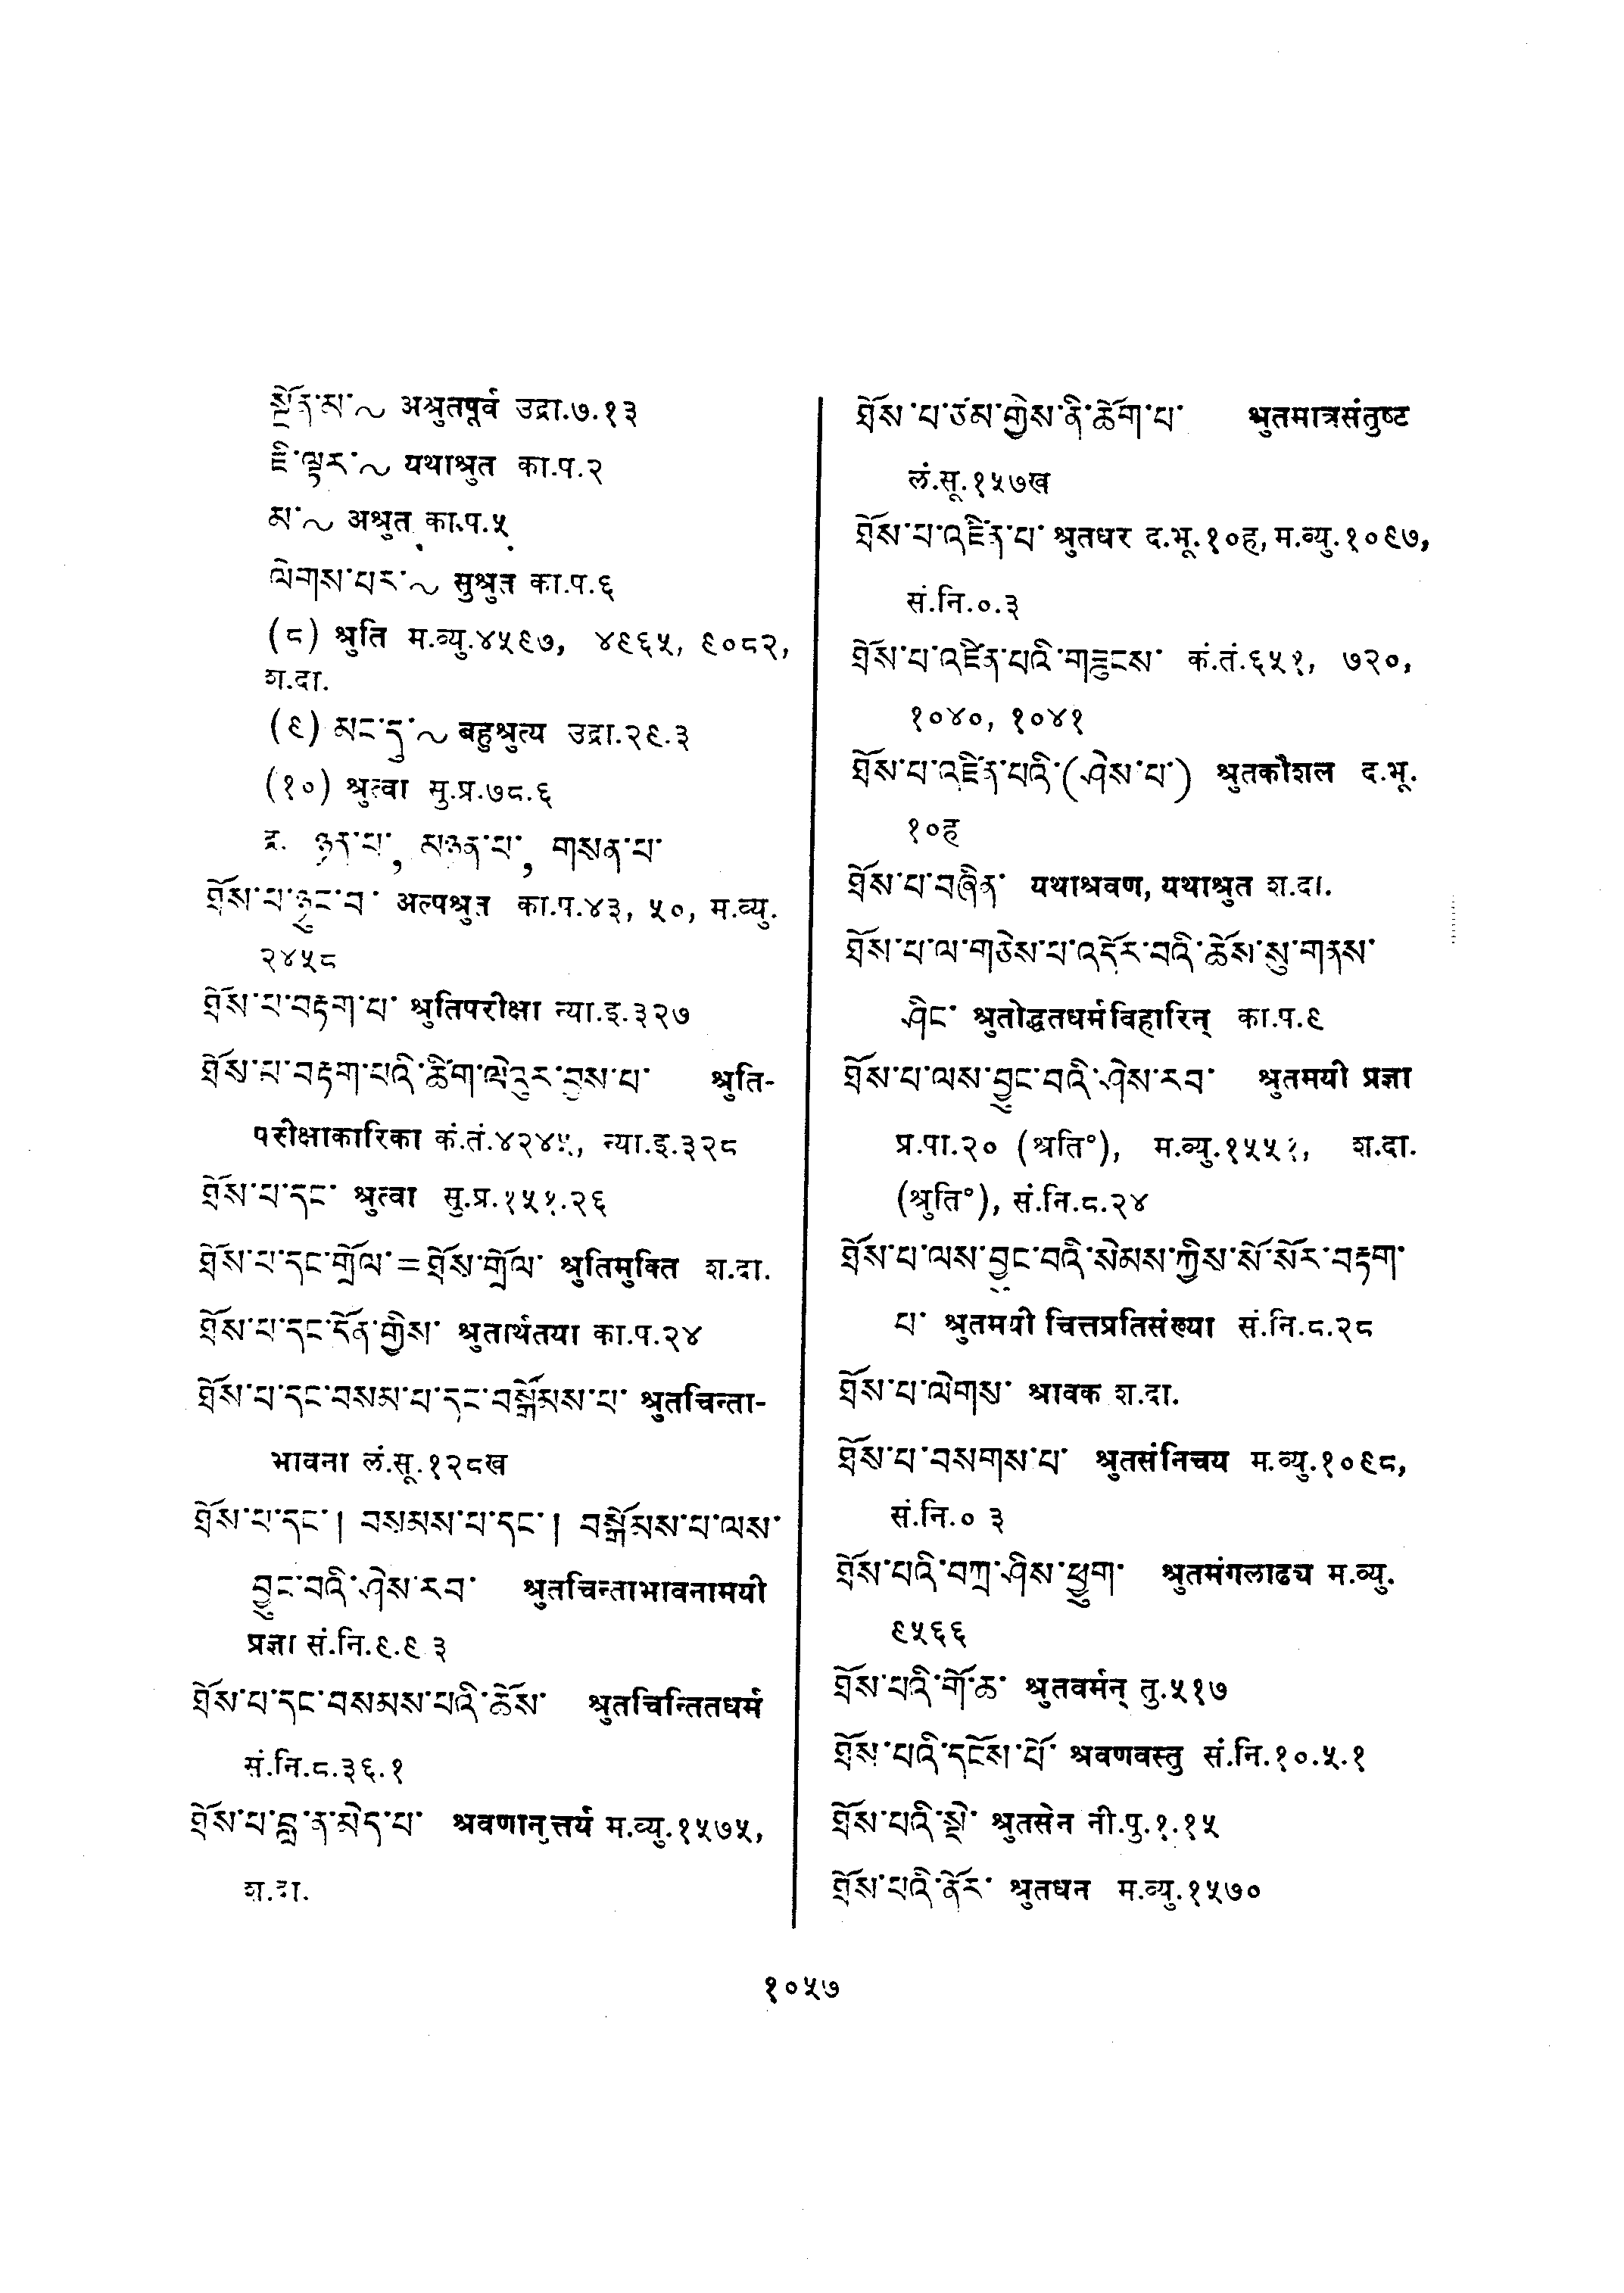 སྔོན་མ་～ अश्रुतपूर्व उद्रा.७.१३
ཇི་ལྟར་～ यथाश्रुत का.प.२
མ་～ अश्रुत का.प.५
ལེགས་པར་～ सुश्रुत का.प.६
(८) श्रुति म.व्यु.४५९७, ४९६५, ९०८२,
श.दा.
(९) མང་དུ་～ बहुश्रुत्य उद्रा.२९.३
(१०) श्रुत्वा सु.प्र.७८.६
द्र. ཉན་པ་, མཉན་པ་, གསན་པ་
ཐོས་པ་ཉུང་བ་ अल्पश्रुत का.प.४३, ५०, म.व्यु.
२४५८
ཐོས་པ་བརྟག་པ་ श्रुतिपरीक्षा न्या.इ.३२७
ཐོས་པ་བརྟག་པའི་ཚིག་ལེའུར་བྱས་པ་ श्रुति-
परीक्षाकारिका कं.तं.४२४५, न्या.इ.३२८
ཐོས་པ་དང་ श्रुत्वा सु.प्र.१५१.२६
ཐོས་པ་དང་གྲོལ་=ཐོས་གྲོལ་ श्रुतिमुक्ति श.दा.
ཐོས་པ་དང་དོན་གྱིས་ श्रुतार्थतया का.प.२४
ཐོས་པ་དང་བསམ་པ་དང་བསྒོམས་པ་ श्रुतचिन्ता-
भावना लं.सू.१२८ख
ཐོས་པ་དང་། བསམས་པ་དང་། བསྒོམས་པ་ལས་
བྱུང་བའི་ཤེས་རབ་ श्रुतचिन्ताभावनामयी
प्रज्ञा सं.नि.९.९ ३
ཐོས་པ་དང་བསམས་པའི་ཆོས་ श्रुतचिन्तितधर्म
सं.नि.८.३६.१
ཐོས་པ་བླ་ན་མེད་པ་ श्रवणानुत्तर्य म.व्यु.१५७५,
श.दा.
ཐོས་པ་ཙམ་གྱིས་ནི་ཆོག་པ་ श्रुतमात्रसंतुष्ट
लं.सू.१५७ख
ཐོས་པ་འཛིན་པ་ श्रुतधर द.भू.१०ह, म.व्यु.१०९७,
सं.नि.०.३
ཐོས་པ་འཛིན་པའི་གཟུངས་ कं.तं.६५१, ७२०,
१०४०, १०४१
ཐོས་པ་འཛིན་པའི་(ཤེས་པ་) श्रुतकौशल द.भू.
१०ह
ཐོས་པ་བཞིན་ यथाश्रवण, यथाश्रुत श.दा.
ཐོས་པ་ལ་གཅེས་པ་འདོར་བའི་ཆོས་སུ་གནས་
ཤིང་ श्रुतोद्धतधर्मविहारिन् का.प.९
ཐོས་པ་ལས་བྱུང་བའི་ཤེས་རབ་ श्रुतमयी प्रज्ञा
प्र.पा.२० (श्रति°), म.व्यु.१५५१, श.दा.
(श्रुति°), सं.नि.८.२४
ཐོས་པ་ལས་བྱུང་བའི་སེམས་ཀྱིས་སོ་སོར་བརྟག་
པ་ श्रुतमयी चित्तप्रतिसंख्या सं.नि.८.२८
ཐོས་པ་ལེགས་ श्रावक श.दा.
ཐོས་པ་བསགས་པ་ श्रुतसंनिचय म.व्यु.१०९८,
सं.नि.० ३
ཐོས་པའི་བཀྲ་ཤིས་ཕྱུག་ श्रुतमंगलाढ्य म.व्यु.
९५६६
ཐོས་པའི་གོ་ཆ་ श्रुतवर्मन् तु.५१७
ཐོས་པའི་དངོས་པོ་ श्रवणवस्तु सं.नि.१०.५.१
ཐོས་པའི་སྡེ་ श्रुतसेन नी.पु.१.१५
ཐོས་པའི་ནོར་ श्रुतधन म.व्यु.१५७०
१०५७